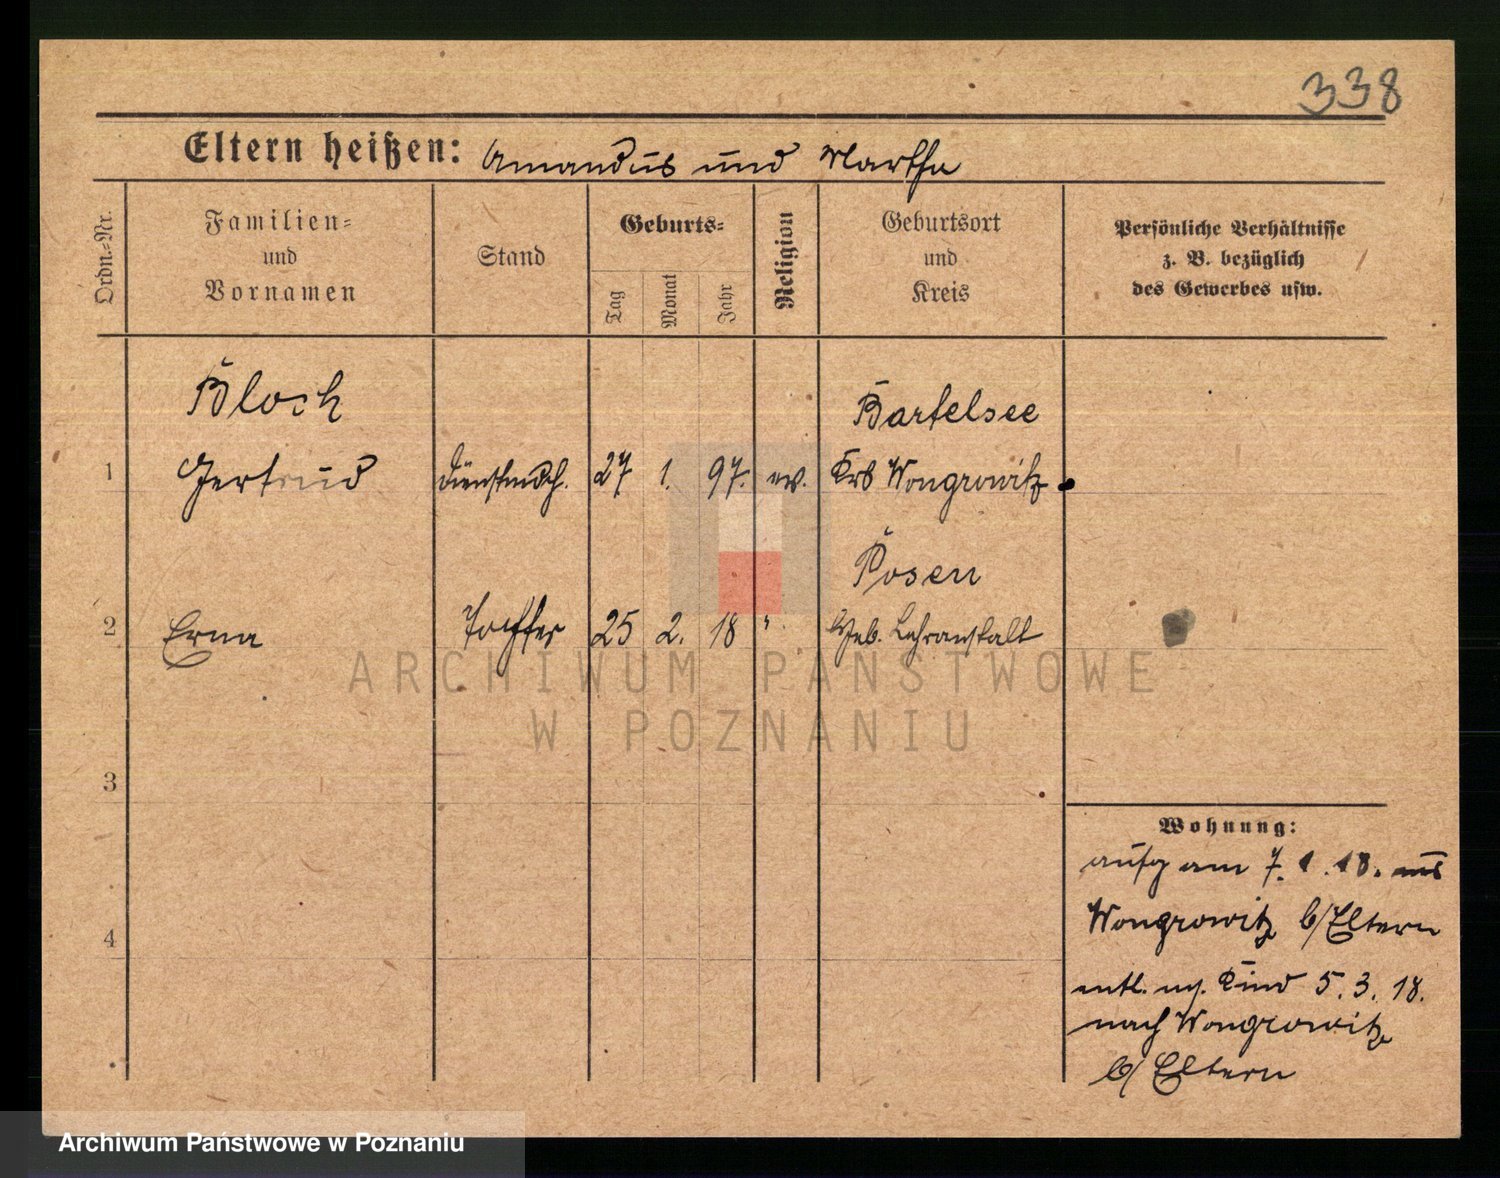 338
Eltern heißen: Amandus und Martha
Ordn.-Nr.
Familien-
und
Vornamen
Stand
Geburts-
Tag
Monat
Jahr
Religion
Geburtsort
und
Kreis
Persönliche Verhältnisse
z. B. bezüglich
des Gewerbes usw.
Bloch
Bartelsee
1 Gertrud Dienstmdch. 27 1. 97. ev. Krs Wongrowitz.
Posen
2 Erna Tochter 25 2. 18 " Heb. Lehranstalt
3
4
Wohnung:
aufg am 7. 1. 18. aus
Wongrowitz b/Eltern
entl. m. Kind 5. 3. 18.
nach Wongrowitz
b/ Eltern
ARCHIWUM PAŃSTWOWE
W POZNANIU
Archiwum Państwowe w Poznaniu